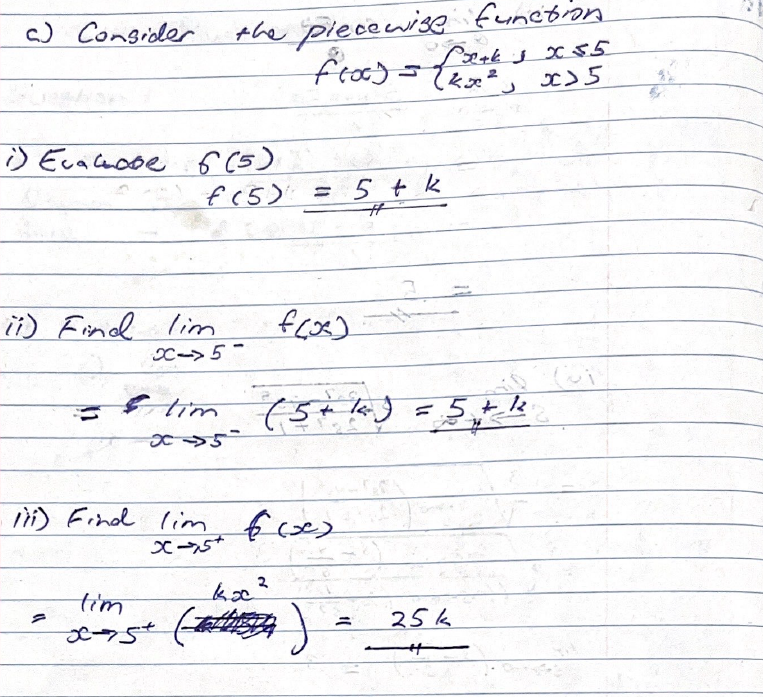 c) Consider the piecewise function
f(x) = { x+k , x ≤ 5
kx² , x > 5
i) Evaluate f(5)
f(5) = 5 + k
ii) Find lim f(x)
x → 5⁻
= lim (5 + k) = 5 + k
x → 5⁻
iii) Find lim f(x)
x → 5⁺
kx²
= lim ( ) = 25k
x → 5⁺